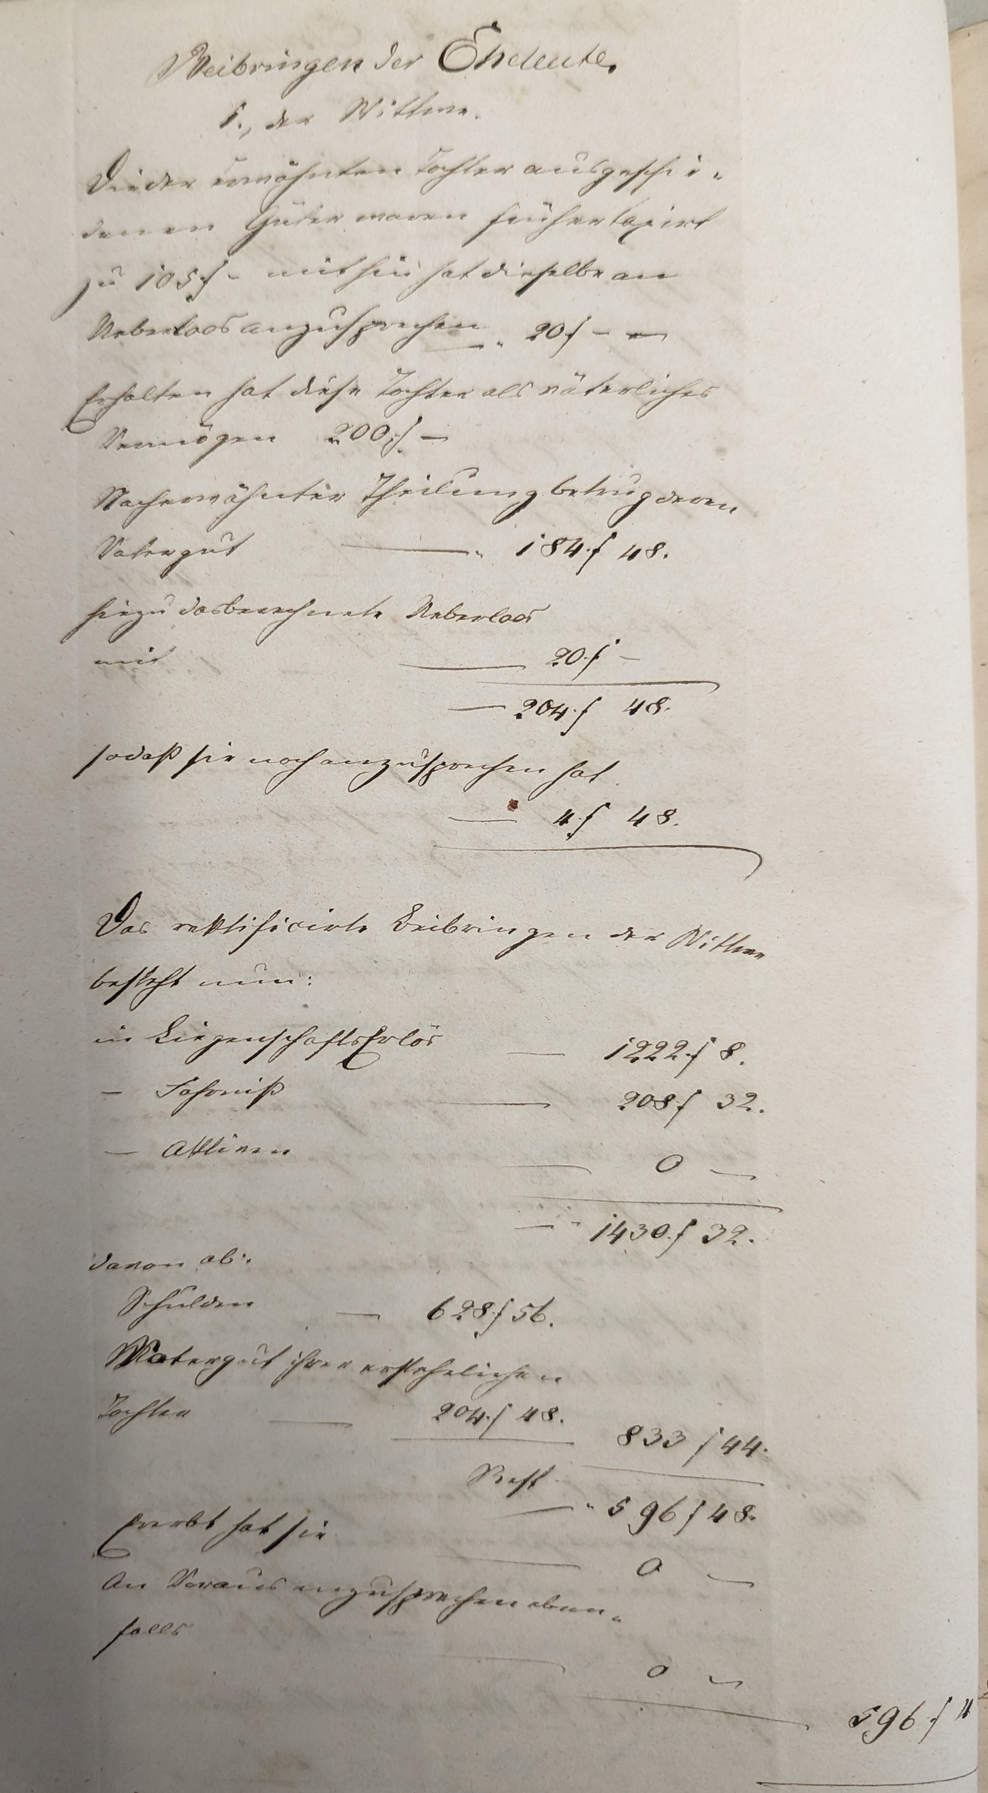 Beibringen der Eheleute.
1., der Wittwe.
Die der erwähnten Tochter ausgeschie-
denen Güter waren früher taxirt
zu 105 f - mithin hat dieselbe an
Ueberloos anzusprechen 20 f - -
Erhalten hat diese Tochter als väterliches
Vermögen 200 f. -
Nacherwähnter Theilung betrug deren
Vatergut — 184 f 48.
hiezu das berechnete Ueberloos
mit — 20 f -
— 204 f 48.
sodaß sie noch anzusprechen hat
— 4 f 48.
Das rektificirte Beibringen der Wittwe
besteht nun:
in Liegenschafts Erlös — 1222 f 8.
— Fahrniß — 208 f 32.
— Aktiven — 0 —
— 1430 f 32.
davon ab:
Schulden — 628 f 56.
Vatergut ihrer erstehelichen
Tochter — 204 f 48. 833 f 44.
Rest — 596 f 48.
Ererbt hat sie — 0 —
An Voraus anzusprechen eben-
falls — 0 —
596 f 4